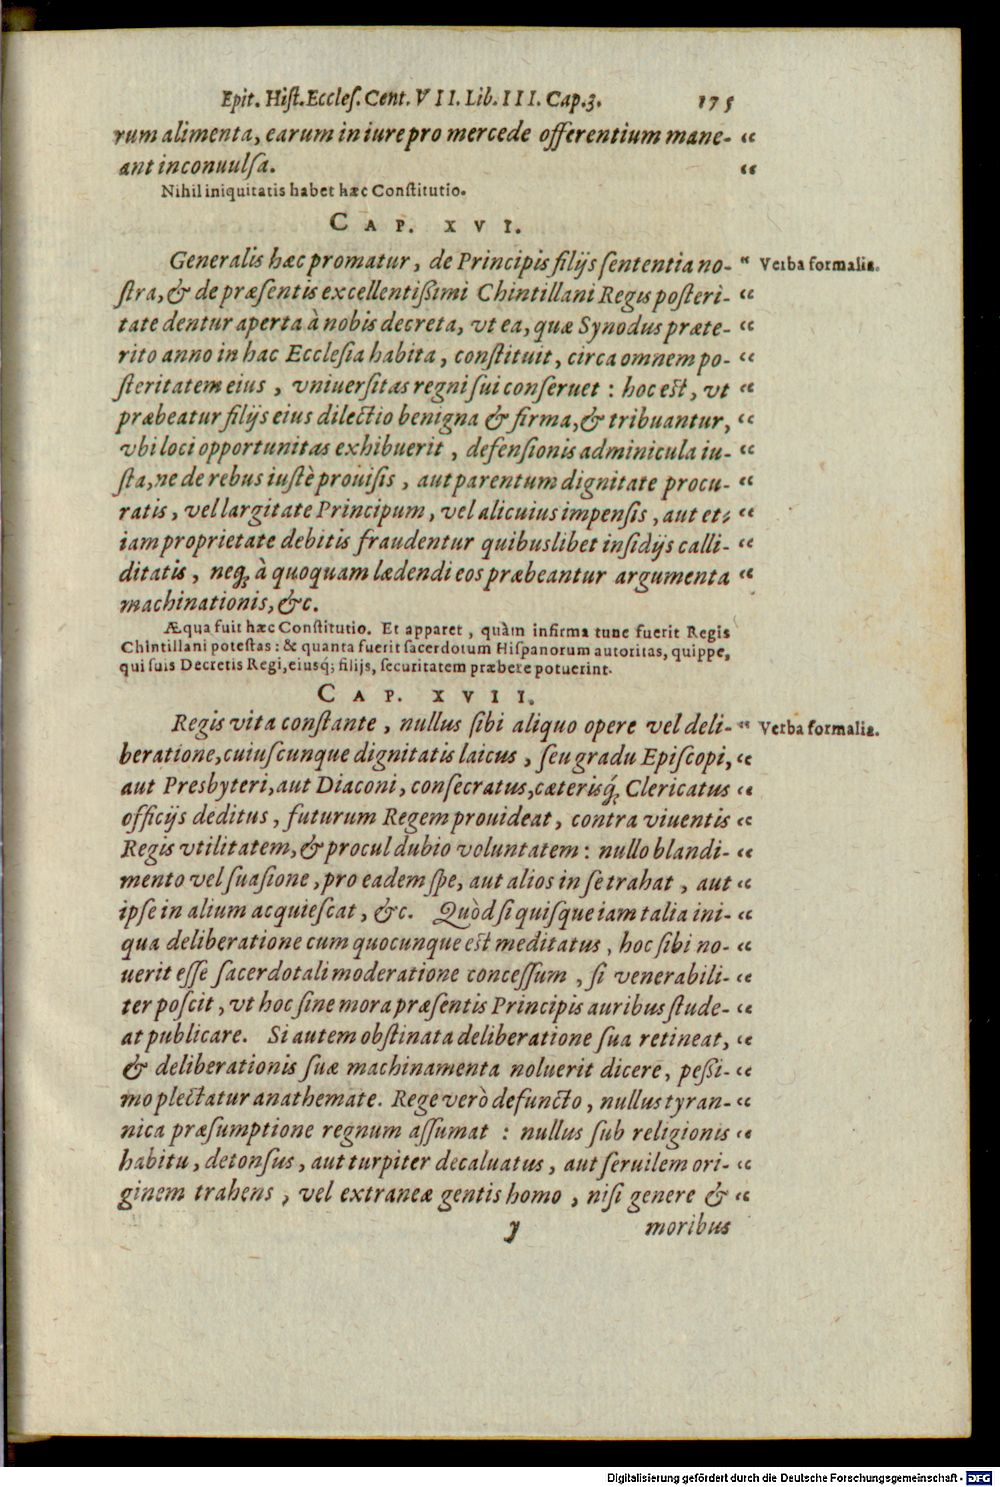 Epit. Hiſt. Eccleſ. Cent. VII. Lib. III. Cap. 3. 175
rum alimenta, earum in iure pro mercede offerentium mane- “
ant inconuulſa. “
Nihil iniquitatis habet hæc Conſtitutio.
CAP. XVI.
Generalis hæc promatur, de Principis filijs ſententia no- “ Verba formalia.
ſtra, & de præſentis excellentißimi Chintillani Regis poſteri- “
tate dentur aperta à nobis decreta, vt ea, quæ Synodus præte- “
rito anno in hac Eccleſia habita, conſtituit, circa omnem po- “
ſteritatem eius, vniuerſitas regni ſui conſeruet: hoc eſt, vt “
præbeatur filijs eius dilectio benigna & firma, & tribuantur, “
vbi loci opportunitas exhibuerit, defenſionis adminicula iu- “
ſta, ne de rebus iuſtè prouiſis, aut parentum dignitate procu- “
ratis, vel largitate Principum, vel alicuius impenſis, aut et- “
iam proprietate debitis fraudentur quibuslibet inſidijs calli- “
ditatis, neq́; à quoquam lædendi eos præbeantur argumenta “
machinationis, &c.
Æqua fuit hæc Conſtitutio. Et apparet, quàm infirma tunc fuerit Regis
Chintillani poteſtas: & quanta fuerit ſacerdotum Hiſpanorum autoritas, quippe,
qui ſuis Decretis Regi, eiusq́; filijs, ſecuritatem præbere potuerint.
CAP. XVII.
Regis vita conſtante, nullus ſibi aliquo opere vel deli- “ Verba formalia.
beratione, cuiuſcunque dignitatis laicus, ſeu gradu Epiſcopi, “
aut Presbyteri, aut Diaconi, conſecratus, cæterisq́; Clericatus “
officijs deditus, futurum Regem prouideat, contra viuentis “
Regis vtilitatem, & procul dubio voluntatem: nullo blandi- “
mento vel ſuaſione, pro eadem ſpe, aut alios in ſe trahat, aut “
ipſe in alium acquieſcat, &c. Quòd ſi quiſque iam talia ini- “
qua deliberatione cum quocunque eſt meditatus, hoc ſibi no- “
uerit eſſe ſacerdotali moderatione conceſſum, ſi venerabili- “
ter poſcit, vt hoc ſine mora præſentis Principis auribus ſtude- “
at publicare. Si autem obſtinata deliberatione ſua retineat, “
& deliberationis ſuæ machinamenta noluerit dicere, peßi- “
mo plectatur anathemate. Rege verò defuncto, nullus tyran- “
nica præſumptione regnum aſſumat: nullus ſub religionis “
habitu, detonſus, aut turpiter decaluatus, aut ſeruilem ori- “
ginem trahens, vel extraneæ gentis homo, niſi genere & “
y moribus
Digitalisierung gefördert durch die Deutsche Forschungsgemeinschaft - DFG